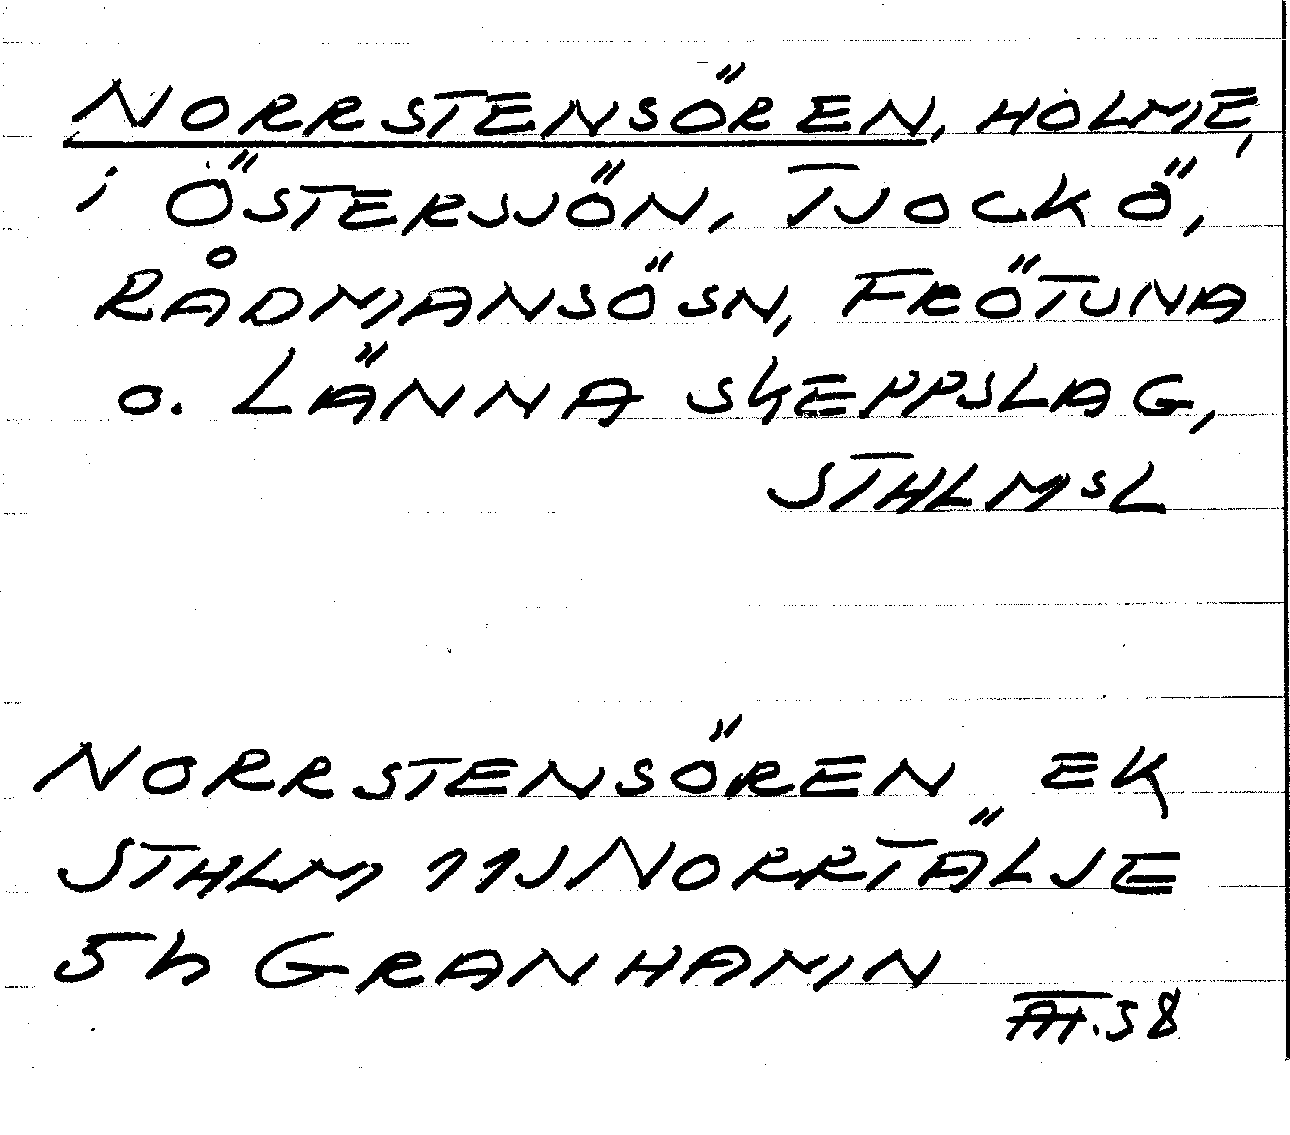 NORRSTENSÖREN, HOLME,
i ÖSTERSJÖN, TJOCKÖ,
RÅDMANSÖSN, FRÖTUNA
o. LÄNNA SKEPPSLAG,
STHLMSL
NORRSTENSÖREN EK
STHLM 11J NORRTÄLJE
5h GRANHAMN
58